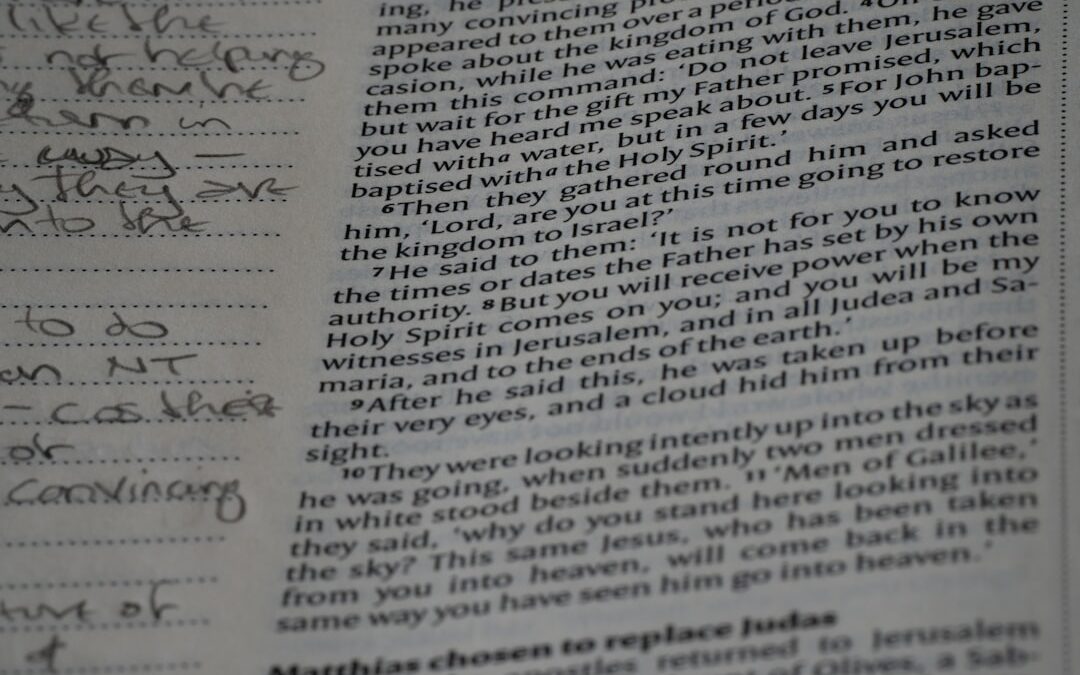 like the
not helping
in
they are
to the
to do
an NT
or
convincing
of
ing, he
many convincing
appeared to them over a
spoke about the kingdom of God. ⁴
casion, while he was eating with them, he gave
them this command: ‘Do not leave Jerusalem,
but wait for the gift my Father promised, which
you have heard me speak about. ⁵For John bap-
tised withᵃ water, but in a few days you will be
baptised withᵃ the Holy Spirit.’
⁶Then they gathered round him and asked
him, ‘Lord, are you at this time going to restore
the kingdom to Israel?’
⁷He said to them: ‘It is not for you to know
the times or dates the Father has set by his own
authority. ⁸But you will receive power when the
Holy Spirit comes on you; and you will be my
witnesses in Jerusalem, and in all Judea and Sa-
maria, and to the ends of the earth.’
⁹After he said this, he was taken up before
their very eyes, and a cloud hid him from their
sight.
¹⁰They were looking intently up into the sky as
he was going, when suddenly two men dressed
in white stood beside them. ¹¹‘Men of Galilee,’
they said, ‘why do you stand here looking into
the sky? This same Jesus, who has been taken
from you into heaven, will come back in the
same way you have seen him go into heaven.’
Matthias chosen to replace Judas
returned to Jerusalem
of Olives, a Sab-